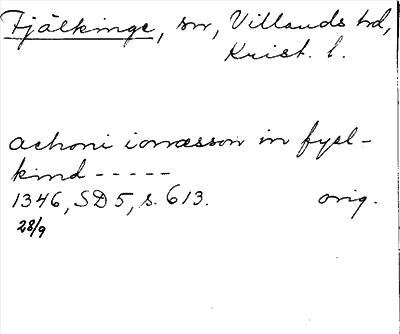 Fjälkinge, sn, Villands hd,
Krist. l.
achoni ionæsson in fyel-
kind -----
1346, SD 5, s. 613. orig.
28/9